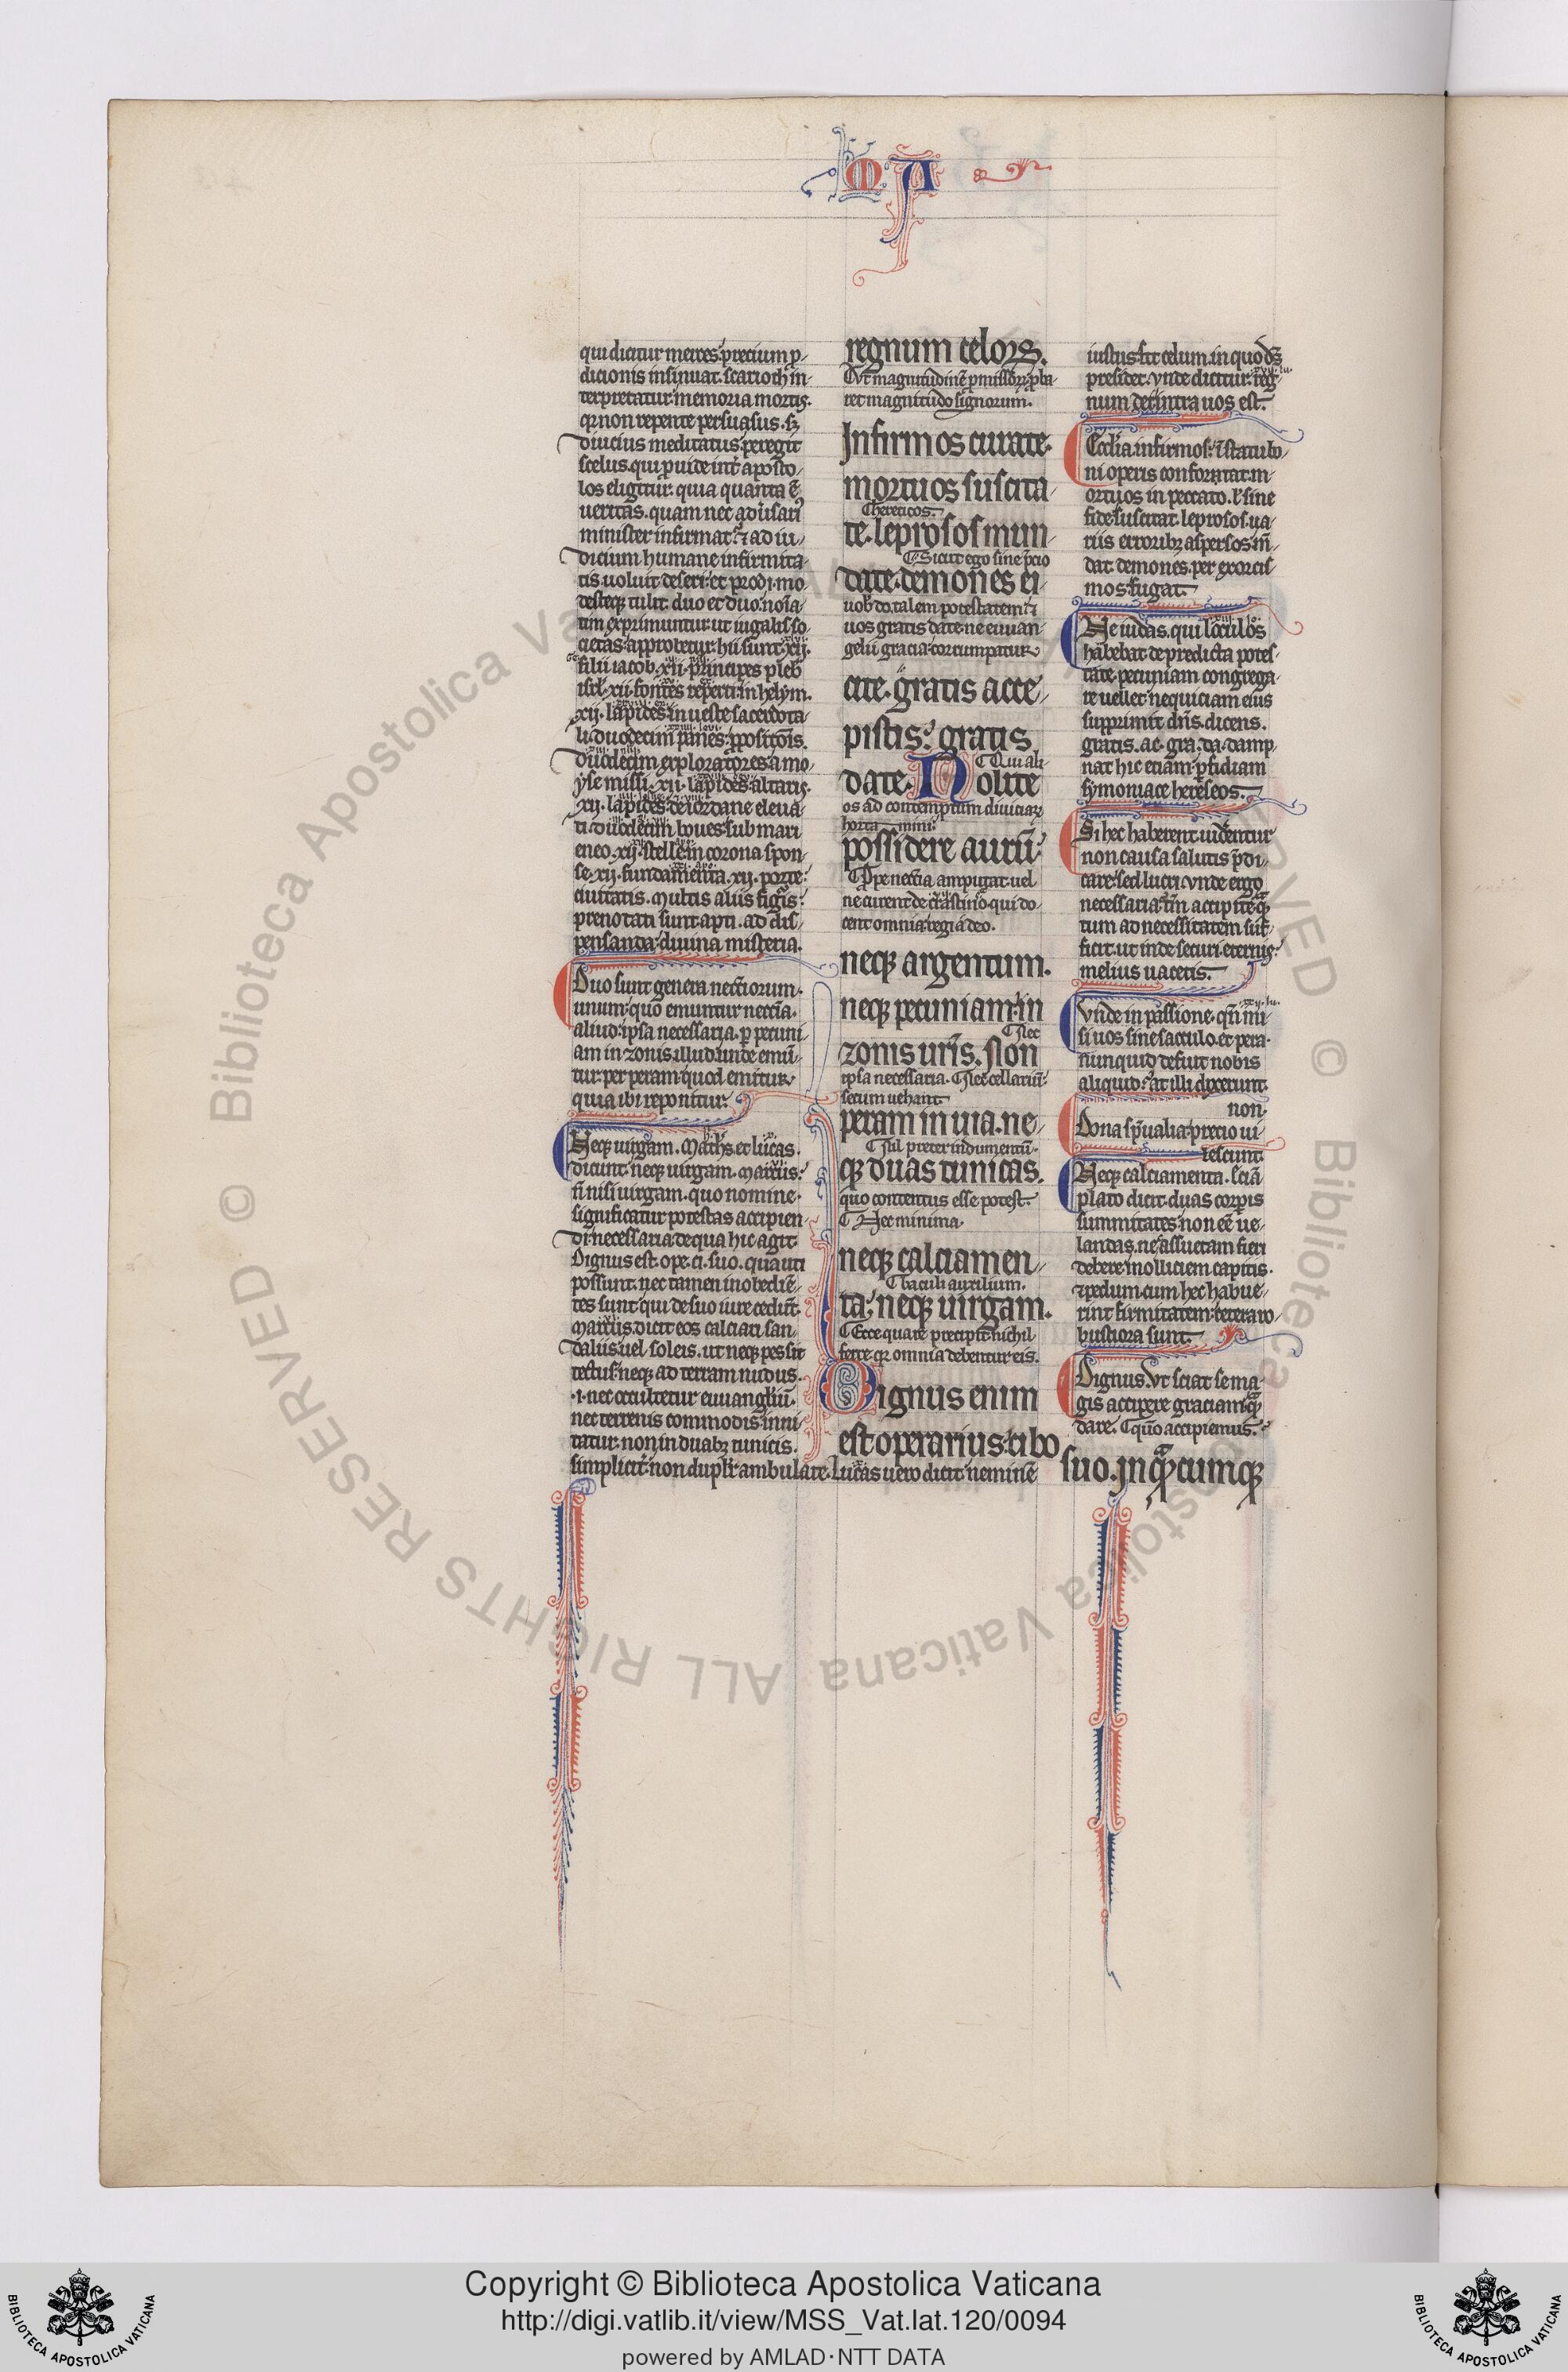 M A
qui dicitur merces precium p̱
dicionis insinuat. scarioth in
terpretatur memoria mortis.
qꝛ non repente persuasus. sꝫ
diucius meditatus peregit
scelus. qui ꝓuide int̄ aposto
los eligitur. quia quanta ē
ueritas. quam nec aduersari9
minister infirmat. ⁊ ad iu
dicium humane infirmita
tis uoluit deseri. et prodi. mo
desteqꝫ tulit. duo et duo no͞ı͞a
tim exprimuntur ut iugalis so
cietas approbetur. hii sunt. xii.
filii iacob. xii. principes pleb̄
isrl̄. xii. fontes reperti in helym.
xij. lapides in ueste sacerdota
li. duodecim panes ꝓpositōis.
duodecim exploratores a mo
yse missi. xii. lapides altaris.
xij. lapides de iordane eleua
ti. duodecim boues sub mari
eneo. xij. stelle in corona spon
se. xij. fundamenta. xij. porte
ciuitatis. multis aliis figuris
prenotati sunt apl̄i. ad dis
pensanda diuina misteria.
Duo sunt genera necc̄iorum.
unum quo emuntur necc̄ia.
aliud ipsa necessaria. ꝑ pecuni
am in zonis illud unde emū
tur. per peram quod emitur
quia ibi reponitur.
Neqꝫ uirgam. Math̄s et lucas
dicunt neqꝫ uirgam. marcus
n̄ nisi uirgam. quo nomine
significatur potestas accipien
di necessaria de qua hic agit
Dignus est. ope. ci. suo. quam ti
possunt. nec tamen inobediē
tes sunt qui de suo iure cedūt.
Marcus. dicit eos calciari san
daliis uel soleis. ut neqꝫ pes sit
tectus neqꝫ ad terram nudus.
.i. nec occultetur euuangliū
nec terrenis commodis inni
tatur. non in duabꝫ tunicis.
simplicit̄ non dupl̄r ambulare. Lucas uero dicit neminē
regnum celoꝝ.
Vt magnitudinē ꝓmissoꝝ ꝓba
ret magnitudo signorum.
Infirmos curate
mortuos suscita
hereticos.
te. leprosos mun
Sicut ego sine p̄cio
date. demones ei
uob̄ do. talem potestatem ⁊
uos gratis date. ne euuan
gelii gracia corrumpatur
cite. gratis acce
pistis. gratis
Qui ali
date. Nolite
os ad contemptum diuiciaꝝ
possidere aurū
ꝓpe necc̄ia amputat uel
ne curent de crastino. qui do
cent omnia regi a deo.
neqꝫ argentum.
neqꝫ pecuniam in
Nec
zonis ur̄is. Non
ipsa necessaria. Nec cellariū
secum uehant
peram in uia. ne
Nil preter indumentū
qꝫ duas tunicas.
quo contentus esse potest.
Nec minima.
neqꝫ calciamen
baculi auxilium.
ta. neqꝫ uirgam.
Ecce quare precipit nichil
ferre qꝛ omnia debentur eis.
Dignus enim
est operarius. cibo
iustus fit celum. in quo d̄s
presidet. vnde dicitur. reg
num dei intra uos est.
Eccl̄ia infirmos. ī statu bo
ni operis confortat. m
ortuos in peccato. ł sine
fide suscitat. leprosos. ua
riis erroribꝫ aspersos mū
dat. demones. per exorcis
mos fugat.
Ne iudas. qui loculos
habebat de predicta potes
tate. pecuniam congrega
re uellet. nequiciam eius
supprimit dn̄s. dicens.
gratis. ac. gra. da. damp
nat hic etiam ꝑfidiam
symoniace hereseos.
Si hec haberent uiderentur
non causa salutis p̄di
care. sed lucri. vnde ergo
necessaria tm̄ accipite qꝫ
tum ad necessitatem suf
ficit. ut inde securi. eternis
melius uacetis.
Vnde in passione. qn̄ mi
si uos sine sacculo. et pera
nunquid defuit nobis
aliquid. at illi dixerunt
non.
Dona sp̄ualia. precio ui
lescunt.
Neqꝫ calciamenta. Eciā
plato dicit. duas corꝑis
summitates non eē ue
landas. ne assuetam fieri
debere molliciem capitis.
⁊ pedum. cum hec habue
rint firmitatem. cetera ro
bustiora sunt.
Dignus. Vt sciat se ma
gis accipere graciam qꝫ
dare. quo accipiemus.
suo. In qͣmcumqꝫ
Copyright © Biblioteca Apostolica Vaticana
http://digi.vatlib.it/view/MSS_Vat.lat.120/0094
powered by AMLAD·NTT DATA
BIBLIOTECA APOSTOLICA VATICANA
BIBLIOTECA APOSTOLICA VATICANA
© Biblioteca Apostolica Vaticana ALL RIGHTS RESERVED © Biblioteca Apostolica Vaticana ALL RIGHTS RESERVED